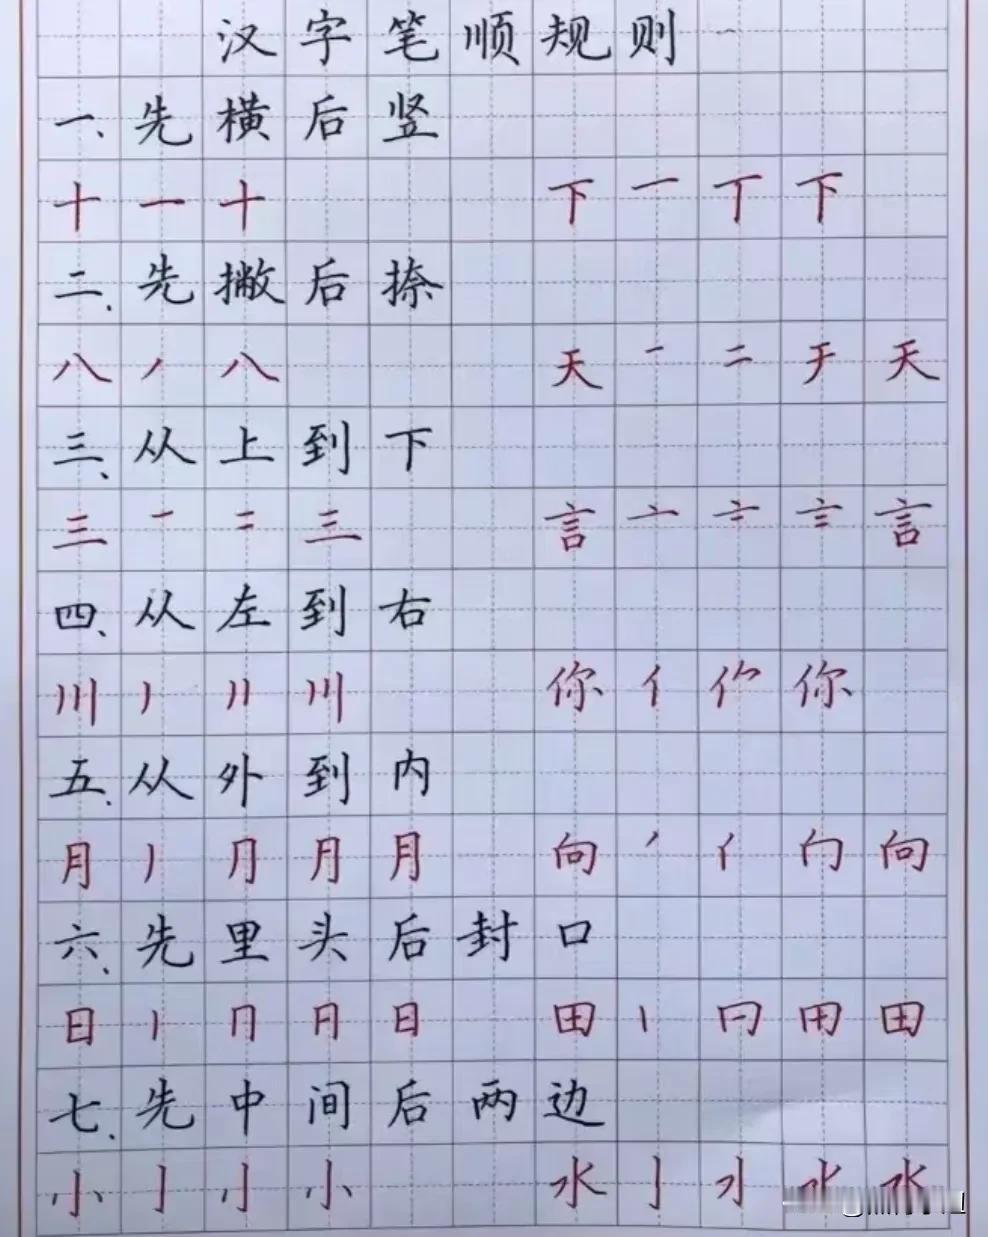 汉字笔顺规则
一、先横后竖
十 一 十 下 一 丅 下
二、先撇后捺
八 丿 八 天 一 二 于 天
三、从上到下
三 一 二 三 言 亠 言
四、从左到右
川 丿 川 你 亻 你
五、从外到内
月 丿 ⺆ 月 向 丿 亻 向
六、先里头后封口
日 丨 冂 日 田 丨 冂 用 田
七、先中间后两边
小 亅 小 水 亅 水